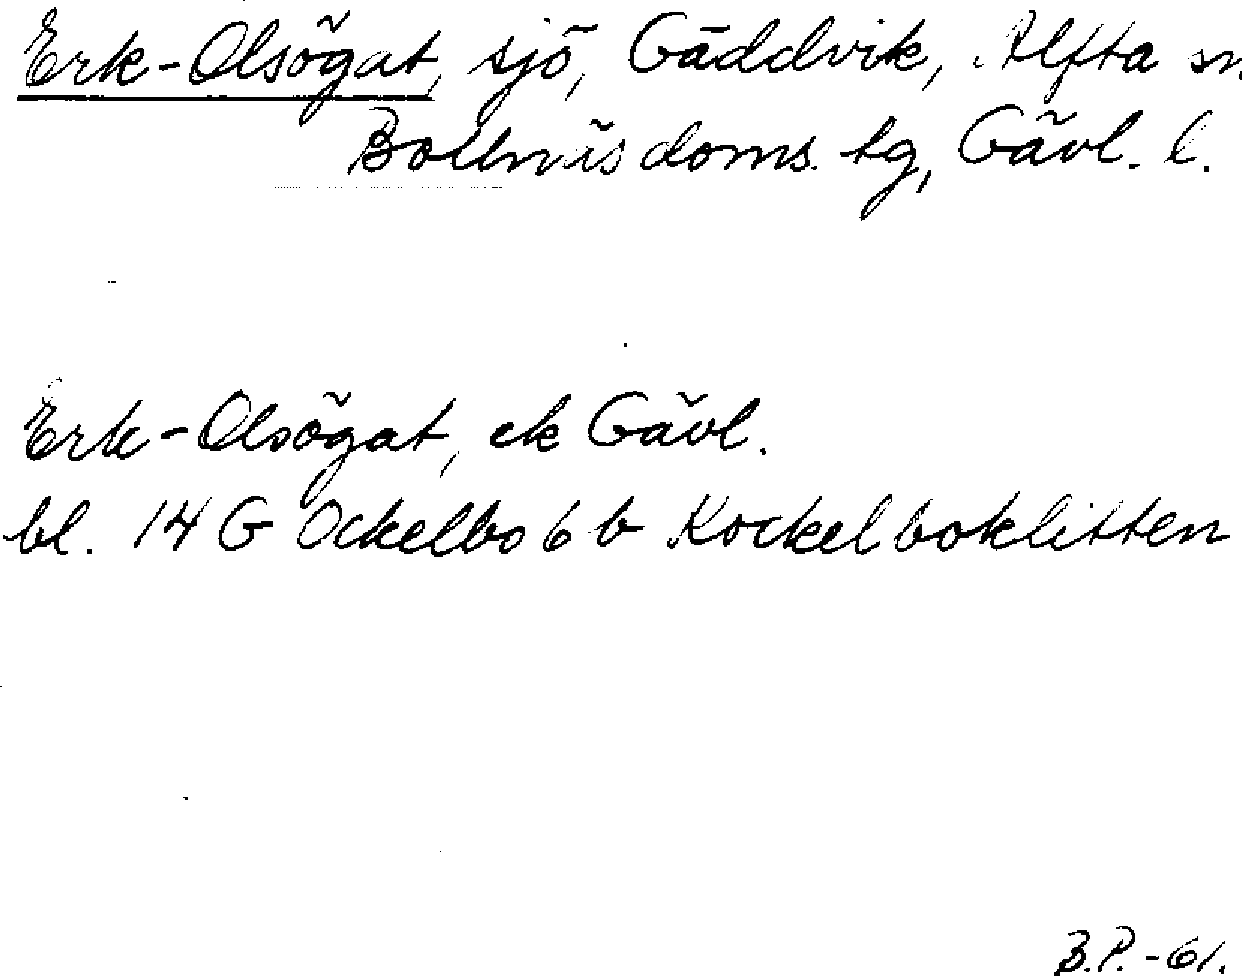 Erk-Olsögat, sjö, Gäddvik, Alfta sn
Bollnäs doms. tg, Gävl. l.
Erk-Olsögat, ek Gävl.
bl. 14 G Ockelbo 6 b Kockelboklitten
B.P. -61.